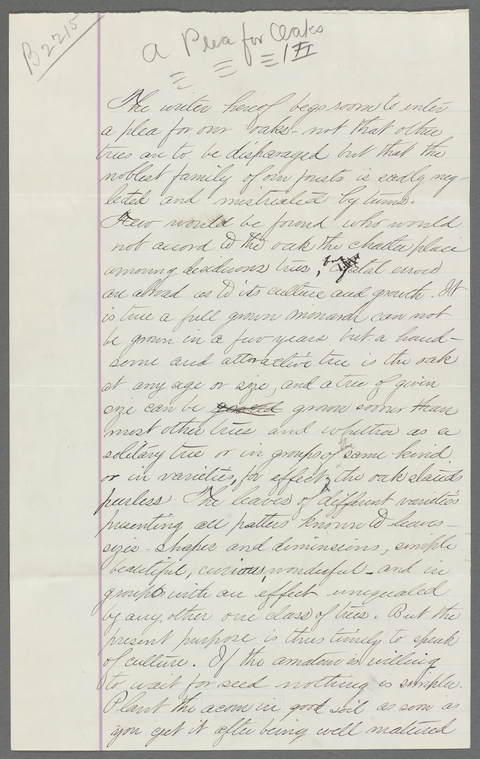 B2215
A Plea for Oaks
The writer hereof begs room to enter
a plea for our oaks - not that other
trees are to be disparaged but that the
noblest family of our forests is sadly neg-
lected and mistreated by turns.
Few would be found who would
not accord to the oak the chatter place
among deciduous trees, but fatal errors
are abroad as to its culture and growth. It
is true a full grown monarch can not
be grown in a few years but a hand-
some and attractive tree is the oak
at any age or size, and a tree of given
size can be grown sooner than
most other trees and whether as a
solitary tree or in groups of the same kind
or in varieties, for effect, the oak stands
peerless. The leaves of different varieties
presenting all patters known to leaves -
sizes - shapes and dimensions, simple
beautiful, curious, wonderful - and in
groups with an effect unequaled
by any other one class of trees. But the
present purpose is thus timely to speak
of culture. If the amateur is willing
to wait for seed nothing is simpler.
Plant the acorn in good soil as soon as
you get it after being well matured